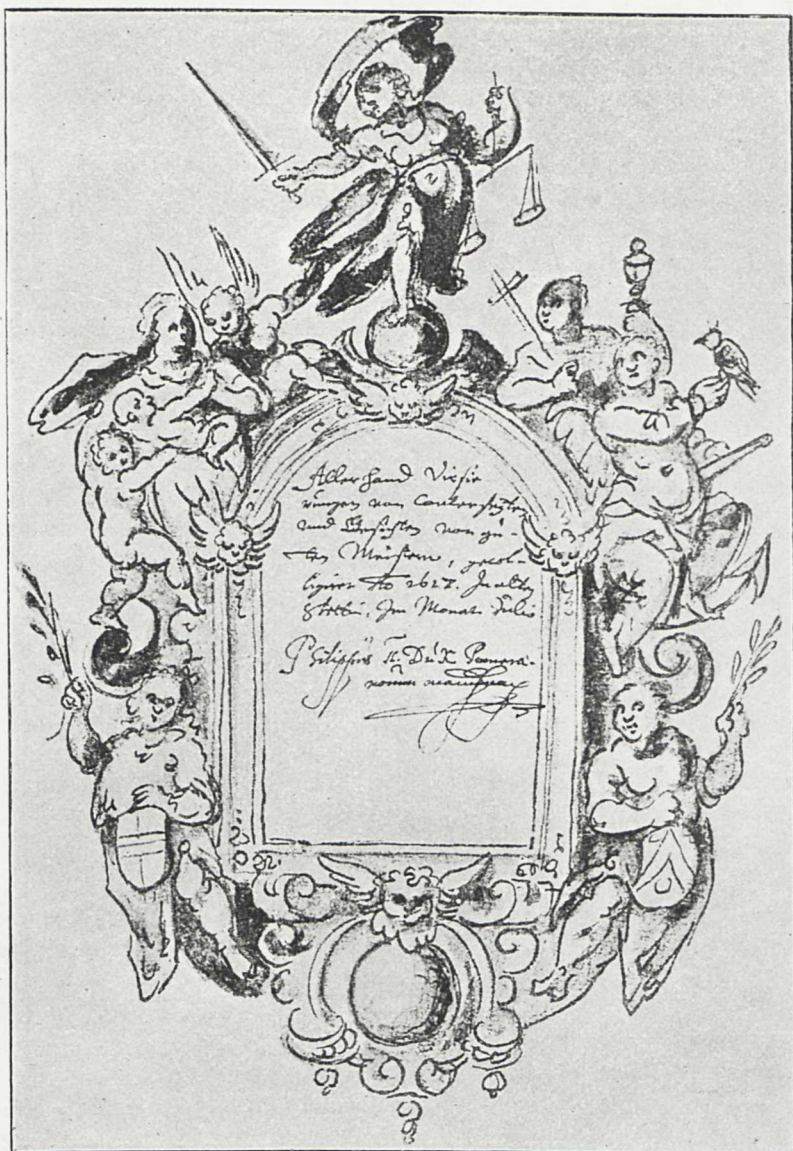 Allerhand Visie
rungen von Conterfeyten
und Gesichten von gu-
ten Meistern, gecol-
ligiret Ao 1617. In alten
Stettin, Im Monat Julio
Philippus II. Dux Pomera-
norum